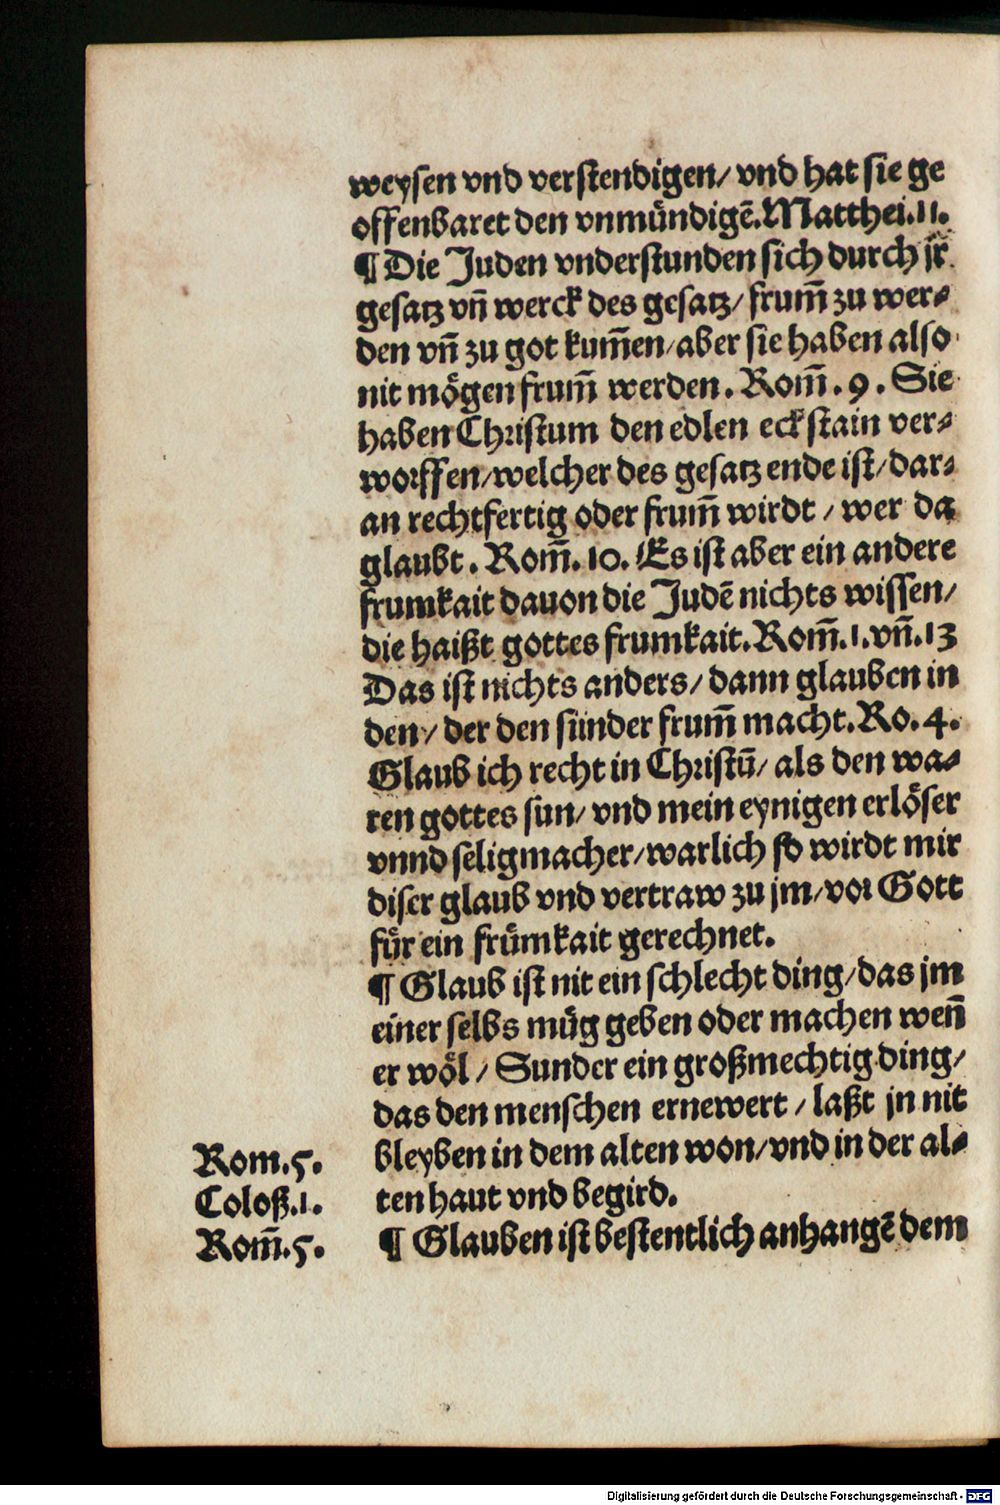 weysen vnd verstendigen/ vnd hat sie ge
offenbaret den vnmündigē. Matthei. 11.
¶ Die Juden vnderstunden sich durch jr
gesatz vñ werck des gesatz/ frum̄ zu wer⸗
den vñ zu got kum̄en/ aber sie haben also
nit mögen frum̄ werden. Rom̄. 9. Sie
haben Christum den edlen eckstain ver⸗
worffen/ welcher des gesatz ende ist/ dar⸗
an rechtfertig oder frum̄ wirdt / wer da
glaubt. Rom̄. 10. Es ist aber ein andere
frumkait dauon die Judē nichts wissen/
die haißt gottes frumkait. Rom̄. 1. vñ. 13
Das ist nichts anders/ dann glauben in
den/ der den sünder frum̄ macht. Ro. 4.
Glaub ich recht in Christū/ als den wa⸗
ren gottes sun/ vnd mein eynigen erlöser
vnnd seligmacher/ warlich so wirdt mir
diser glaub vnd vertraw zu jm/ vor Gott
für ein frümkait gerechnet.
¶ Glaub ist nit ein schlecht ding/ das jm
einer selbs müg geben oder machen weñ
er wöl / Sunder ein großmechtig ding/
das den menschen ernewert / laßt jn nit
bleyben in dem alten won/ vnd in der al⸗
ten haut vnd begird.
¶ Glauben ist bestentlich anhangē dem
Rom. 5.
Coloß. 1.
Rom̄. 5.
Digitalisierung gefördert durch die Deutsche Forschungsgemeinschaft - DFG